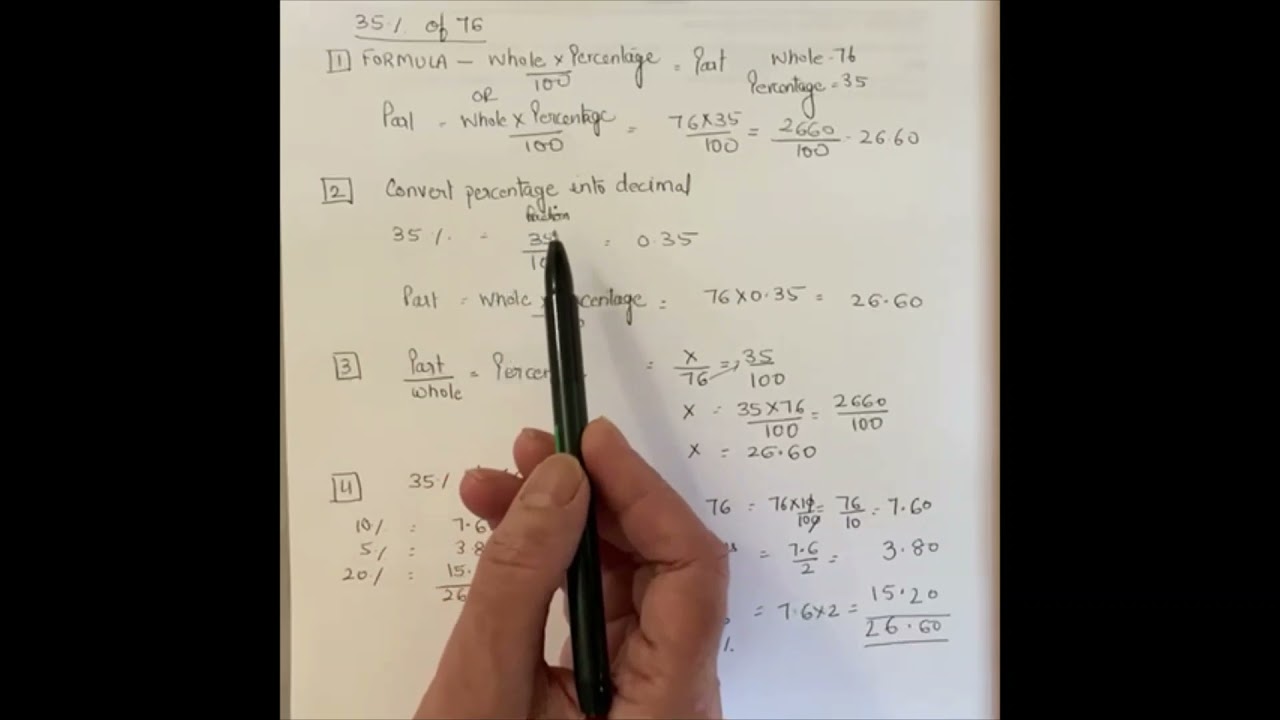 35% of 76
1 FORMULA - Whole x Percentage / 100 = Part Whole - 76
OR Percentage = 35
Part = Whole x Percentage / 100 = 76x35 / 100 = 2660 / 100 - 26.60
2 Convert percentage into decimal
fraction
35% = 35 / = 0.35
Part = Whole = 76 x 0.35 = 26.60
3 Part / Whole = = x / 76 = 35 / 100
x = 35x76 / 100 = 2660 / 100
x = 26.60
4 35%
76 = 76x10 / 100 = 76 / 10 = 7.60
10% =
5% = = 7.6 / 2 = 3.80
20% = = 7.6x2 = 15.20
26.60